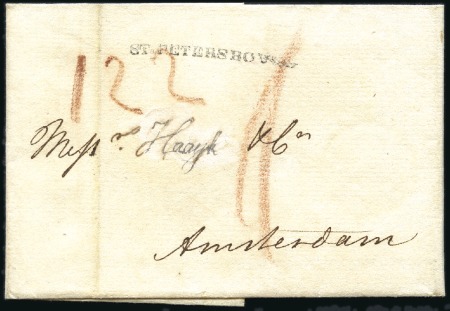 ST. PETERSBOURG
122
Messrs Haagk & Co
Amsterdam